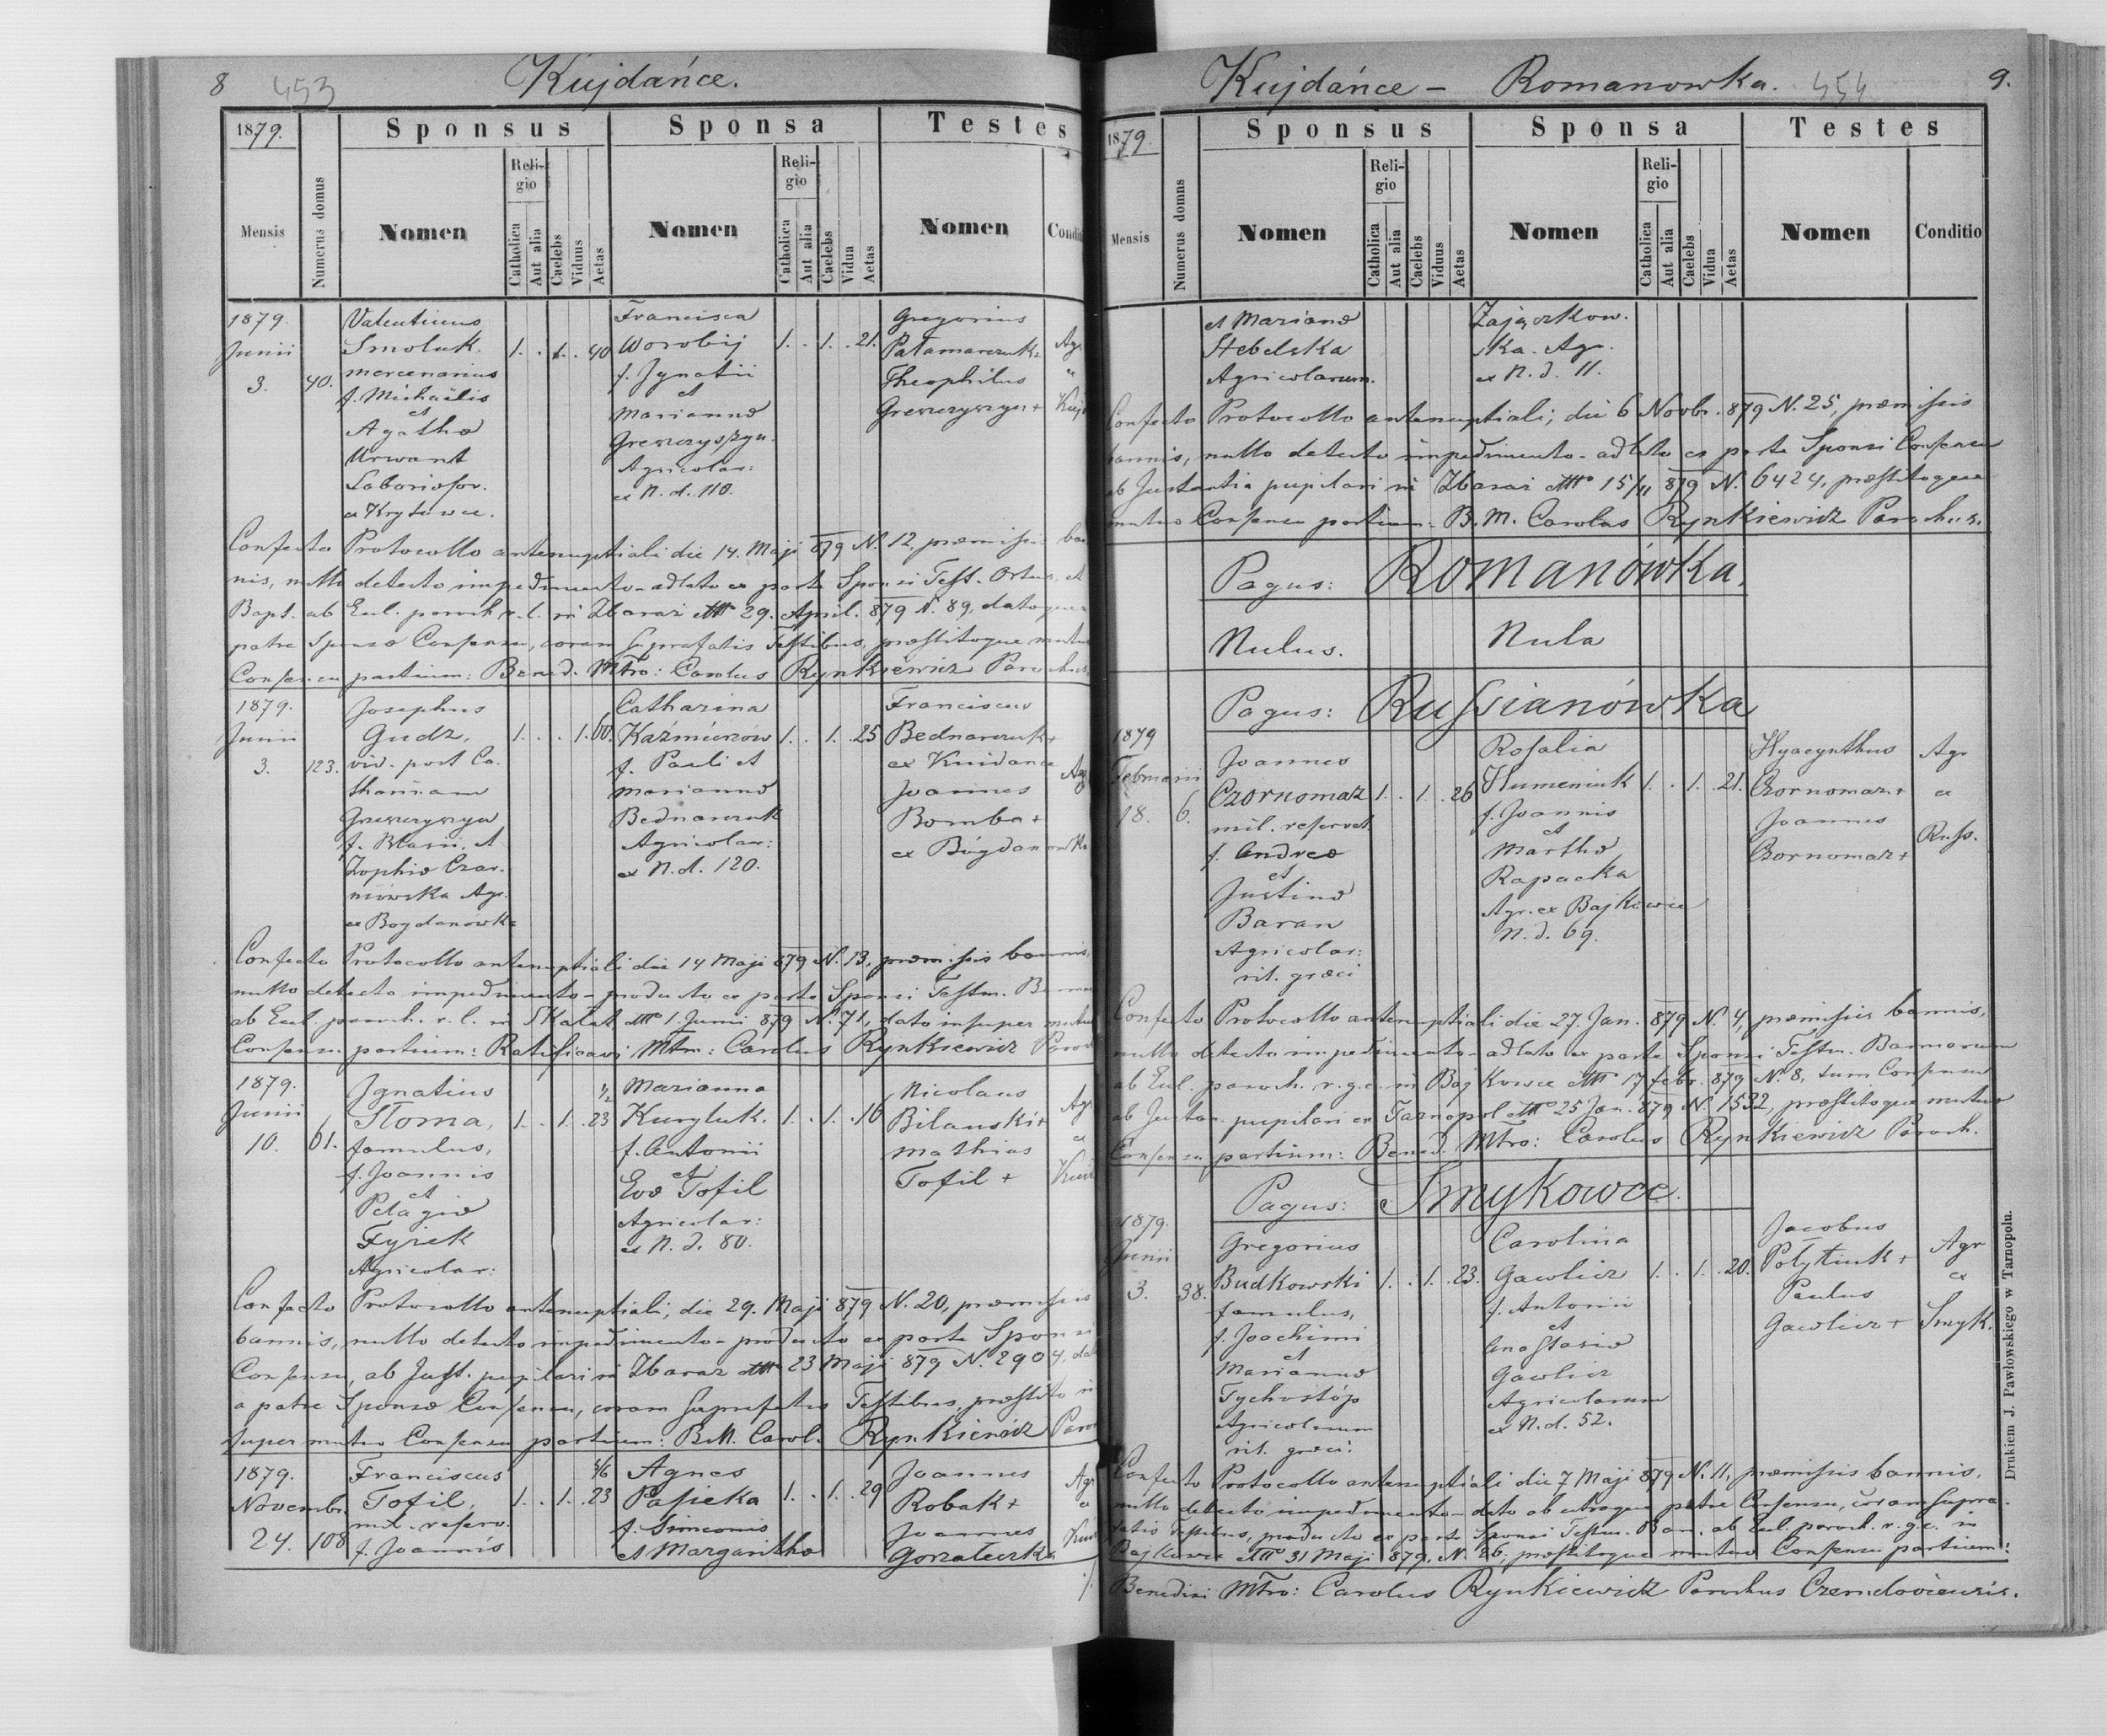 8 453 Kujdańce.
1879. Sponsus Sponsa Testes
Mensis Numerus domus Nomen Religio Catholica Aut alia Caelebs Viduus Aetas Nomen Religio Catholica Aut alia Caelebs Vidua Aetas Nomen
1879. Valentinus Francisca Gregorius
Junii Smoluk. 1. . 1. . 40 Worobij 1. . 1. . 21. Pałamarczuk+
3. 40. mercenarius f. Ignatii Theophilus
f. Michaelis et Greszczyszyn+
et Mariannæ
Agathæ Greszczyszyn.
Urwant Agricolar:
Laboriosor. ex N. d. 110.
ex Krytowce.
Confecto Protocollo antenuptiali die 14. Maji 879 N. 12, præmissis
nis, nullo detecto impedimento - adlato ex parte Sponsi Test. Ortus et
Bapt. ab Eccl. paroch r. l. in Zbaraz 29. April. 879 N. 89, datoque a
patre Sponsæ Consensu, coram suprafatis Testibus, præstitoque mutuo
Consensu partium: Bened. Mtro: Carolus Rynkiewicz Parochus.
1879. Josephus Catharina Franciscus
Junii Gudz, 1. . . 1. 60. Kaźmirów 1. . 1. . 25 Bednarczuk+
3. 123. vid. post Ca- f. Pauli et ex Kuidance
tharinam Mariannæ Joannes
Greszczyszyn Bednarczuk Bomba+
f. Blasii et Agricolar: ex Bogdanowka
Zophiæ Czar- ex N. d. 120.
niowska Agr.
ex Bogdanówka
Confecto Protocollo antenuptiali die 14 Maji 879 N. 13, præmissis bannis,
nullo detecto impedimento - producto ex parte Sponsi Testm.
ab Eccl. paroch. r. l. in Skalat 1. Junii 879 N. 71, dato insuper mutuo
Consensu partium: Ratificavi Mtm: Carolus Rynkiewicz
1879. Ignatius ½ Marianna Nicolaus
Junii Słoma, 1. . 1. . 23 Kuryluk. 1. . 1. . 16 Bilanski+
10. 61. famulus, f. Antonii Mathias
f. Joannis et Tofil +
et Evæ Tofil
Pelagiæ Agricolar:
Fyrek ex N. d. 80.
Agricolar:
Confecto Protocollo antenuptiali, die 29. Maji 879 N. 20, præmissis
bannis, nullo detecto impedimento - producto ex parte Sponsi
Consensu, ab Just. pupilari in Zbaraz 23 Maji 879 N. 2904,
a patre Sponsæ Consensu, coram suprafatis Testibus, præstito in-
super mutuo Consensu partium: B. M. Carol. Rynkiewicz
1879. Franciscus Agnes Joannes
Novembr. Tofil, 1. . 1. . 23 Pasieka 1. . 1. . 29 Robak+
24. 108 mil. reserv. f. Simeonis Joannes
f. Joannis et Margarithæ
Kujdańce - Romanowka. 454 9.
1879. Sponsus Sponsa Testes
Mensis Numerus domus Nomen Religio Catholica Aut alia Caelebs Viduus Aetas Nomen Religio Catholica Aut alia Caelebs Vidua Aetas Nomen Conditio
et Mariannæ Zajączkow-
Stebelska ska. Agr.
Agricolarum. ex N. d. 11.
Confecto Protocollo antenuptiali; die 6 Novbr. 879 N. 25, præmissis
bannis, nullo detecto impedimento - adlato ex parte Sponsi Consensu
ab Justantia pupilari in Zbaraz 15/11 879 N. 6424, præstitoque
mutuo Consensu partium - B. M. Carolus Rynkiewicz Parochus.
Pagus: Romanówka.
Nulus. Nula
Pagus: Russianówka
1879 Joannes Rosalia Hyacynthus Agr
Februarii Czornomaz 1. . 1. . 26 Humeniuk 1. . 1. . 21. Czornomaz+ ex
18. 6. mil. reservat. f. Joannis Joannes Russ.
f. Andreæ et Czornomaz+
et Marthæ
Justinæ Rapacka
Baran Agr. ex Bajkowce
Agricolar: N. d. 69.
rit. græci
Confecto Protocollo antenuptiali die 27. Jan. 879 N. 4, præmissis bannis,
nullo detecto impedimento - adlato ex parte Sponsi Testm. Bannorum
ab Eccl. paroch. r. g. c. in Bajkowce 17 febr. 879 N. 8, tum Consensu
ab Justan. pupilari ex Tarnopol 25 Jan. 879 N. 1532, præstitoque mutuo
Consensu partium: Bened. Mtro: Carolus Rynkiewicz Paroch.
Pagus: Smykowce.
1879. Gregorius Carolina Jacobus Agr
Junii Budkowski 1. . 1. . 23. Gawlicz 1. . 1. . 20. Połytiuk + ex
3. 38. famulus, f. Antonii Paulus Smyk.
f. Joachimi et Gawlicz +
et Anastasiæ
Mariannæ Gawlicz
Tychostóp Agricolarum
Agricolarum ex N. d. 52.
rit. græci:
Confecto Protocollo antenuptiali die 7 Maji 879 N. 11, præmissis bannis,
nullo detecto impedimento - dato ab utroque patre Consensu, coram supra-
fatis Testibus, producto ex parte Sponsi Testm. Ban. ab Eccl. paroch. r. g. c. in
Bajkowce 31 Maji 879, N. 26. præstitoque mutuo Consensu partium:
Benedixi Mtro: Carolus Rynkiewicz Parochus Czernelovicensis.
Drukiem J. Pawłowskiego w Tarnopolu.